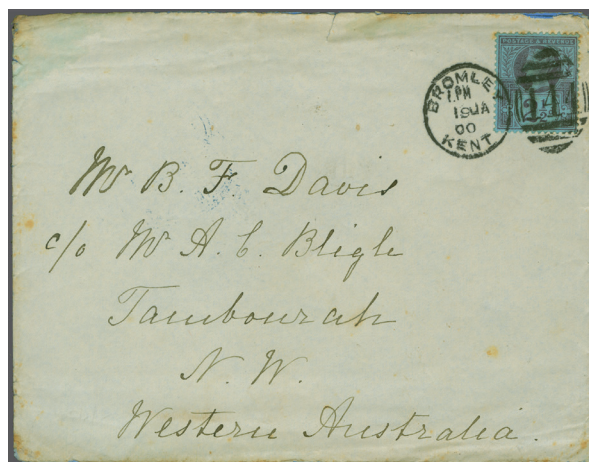 POSTAGE & REVENUE
BROMLEY
1 PM
19 JA
00
KENT
Mr B. F. Davis
c/o Mr A. C. Bligh
Tambourah
N. W.
Western Australia.